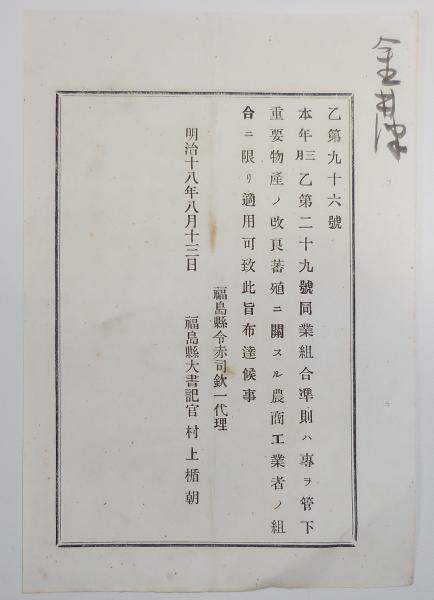 乙第九十六號
本年三月乙第二十九號同業組合準則ハ專ラ管下
重要物產ノ改良蕃殖ニ關スル農商工業者ノ組
合ニ限リ適用可致此旨布達候事
福島縣令赤司欽一代理
明治十八年八月十三日　福島縣大書記官 村上楯朝